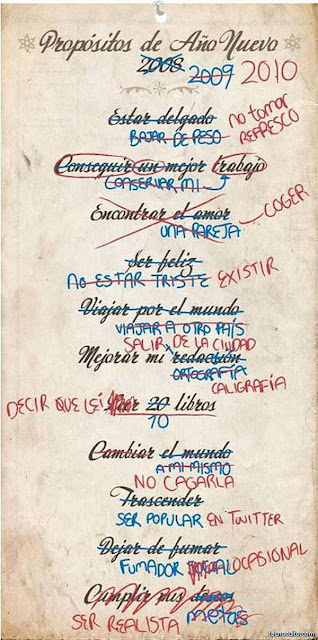 Propósitos de Año Nuevo
2008 2009 2010
Estar delgado no tomar
BAJAR DE PESO REFRESCO
Conseguir un mejor trabajo
CONSERVAR MI
Encontrar el amor COGER
UNA PAREJA
Ser feliz
No ESTAR TRISTE EXISTIR
Viajar por el mundo
VIAJAR A OTRO PAÍS
SALIR DE LA CIUDAD
Mejorar mi redacción
ORTOGRAFÍA
CALIGRAFÍA
DECIR QUE LEÍ Leer 20 libros
10
Cambiar el mundo
A MI MISMO
NO CAGARLA
Trascender
SER POPULAR EN TWITTER
Dejar de fumar
FUMADOR OCASIONAL
Cumplir mis
SER REALISTA METAS